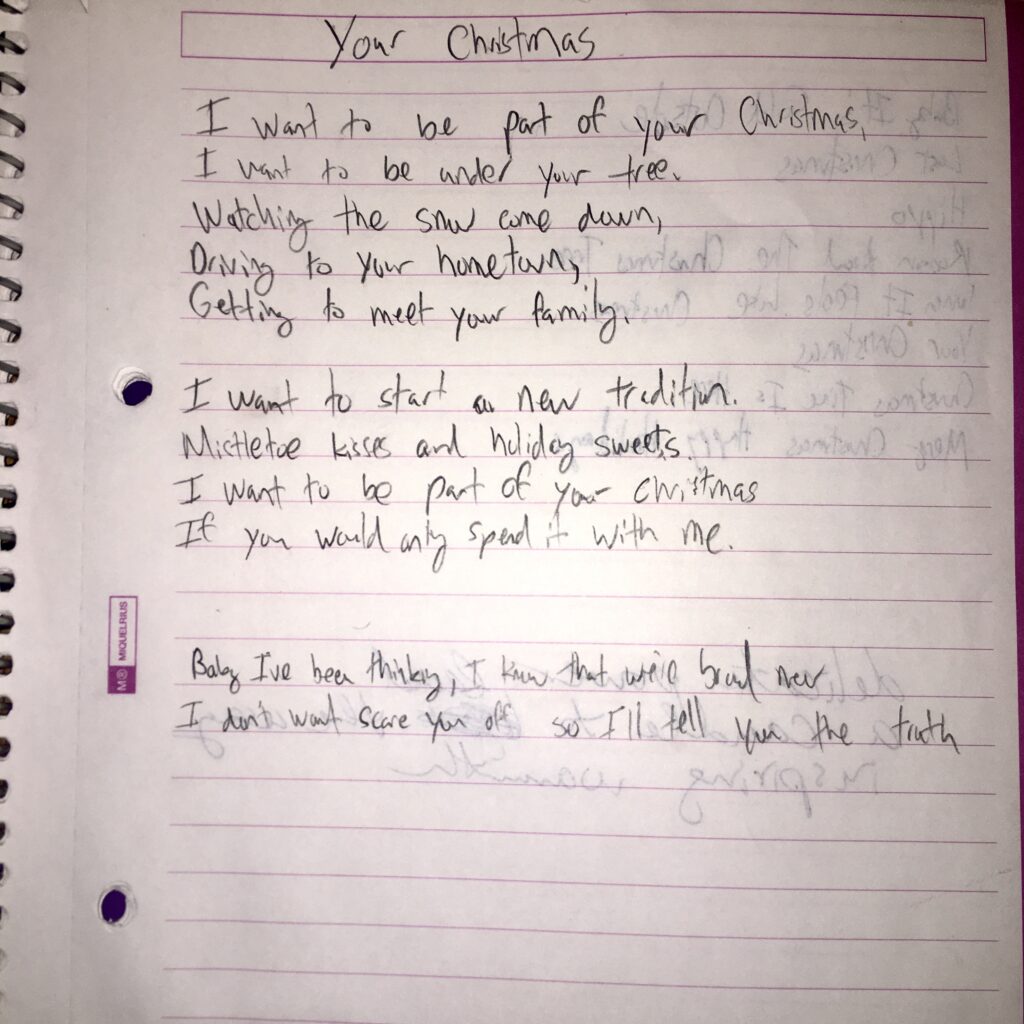 Your Christmas
I want to be part of your Christmas,
I want to be under your tree.
Watching the snow come down,
Driving to your hometown,
Getting to meet your family.
I want to start a new tradition.
Mistletoe kisses and holiday sweets.
I want to be part of your christmas
If you would only spend it with me.
MIQUELRIUS
Baby I've been thinking, I know that we're brand new
I don't want scare you off so I'll tell you the truth